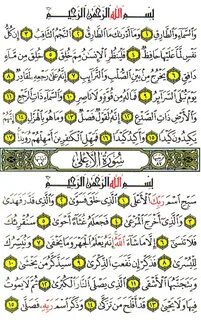 بِسْمِ اللَّهِ الرَّحْمَٰنِ الرَّحِيمِ
وَالسَّمَاءِ وَالطَّارِقِ ١ وَمَا أَدْرَاكَ مَا الطَّارِقُ ٢ النَّجْمُ الثَّاقِبُ ٣ إِن كُلُّ
نَفْسٍ لَّمَّا عَلَيْهَا حَافِظٌ ٤ فَلْيَنظُرِ الْإِنسَانُ مِمَّ خُلِقَ ٥ خُلِقَ مِن مَّاءٍ
دَافِقٍ ٦ يَخْرُجُ مِن بَيْنِ الصُّلْبِ وَالتَّرَائِبِ ٧ إِنَّهُ عَلَىٰ رَجْعِهِ لَقَادِرٌ ٨
يَوْمَ تُبْلَى السَّرَائِرُ ٩ فَمَا لَهُ مِن قُوَّةٍ وَلَا نَاصِرٍ ١٠ وَالسَّمَاءِ ذَاتِ الرَّجْعِ
١١ وَالْأَرْضِ ذَاتِ الصَّدْعِ ١٢ إِنَّهُ لَقَوْلٌ فَصْلٌ ١٣ وَمَا هُوَ بِالْهَزْلِ ١٤ إِنَّهُمْ
يَكِيدُونَ كَيْدًا ١٥ وَأَكِيدُ كَيْدًا ١٦ فَمَهِّلِ الْكَافِرِينَ أَمْهِلْهُمْ رُوَيْدًا ١٧
سُورَةُ الْأَعْلَىٰ
بِسْمِ اللَّهِ الرَّحْمَٰنِ الرَّحِيمِ
سَبِّحِ اسْمَ رَبِّكَ الْأَعْلَى ١ الَّذِي خَلَقَ فَسَوَّىٰ ٢ وَالَّذِي قَدَّرَ فَهَدَىٰ
٣ وَالَّذِي أَخْرَجَ الْمَرْعَىٰ ٤ فَجَعَلَهُ غُثَاءً أَحْوَىٰ ٥ سَنُقْرِئُكَ
فَلَا تَنسَىٰ ٦ إِلَّا مَا شَاءَ اللَّهُ إِنَّهُ يَعْلَمُ الْجَهْرَ وَمَا يَخْفَىٰ ٧ وَنُيَسِّرُكَ
لِلْيُسْرَىٰ ٨ فَذَكِّرْ إِن نَّفَعَتِ الذِّكْرَىٰ ٩ سَيَذَّكَّرُ مَن يَخْشَىٰ ١٠
وَيَتَجَنَّبُهَا الْأَشْقَى ١١ الَّذِي يَصْلَى النَّارَ الْكُبْرَىٰ ١٢ ثُمَّ لَا يَمُوتُ
فِيهَا وَلَا يَحْيَىٰ ١٣ قَدْ أَفْلَحَ مَن تَزَكَّىٰ ١٤ وَذَكَرَ اسْمَ رَبِّهِ فَصَلَّىٰ ١٥